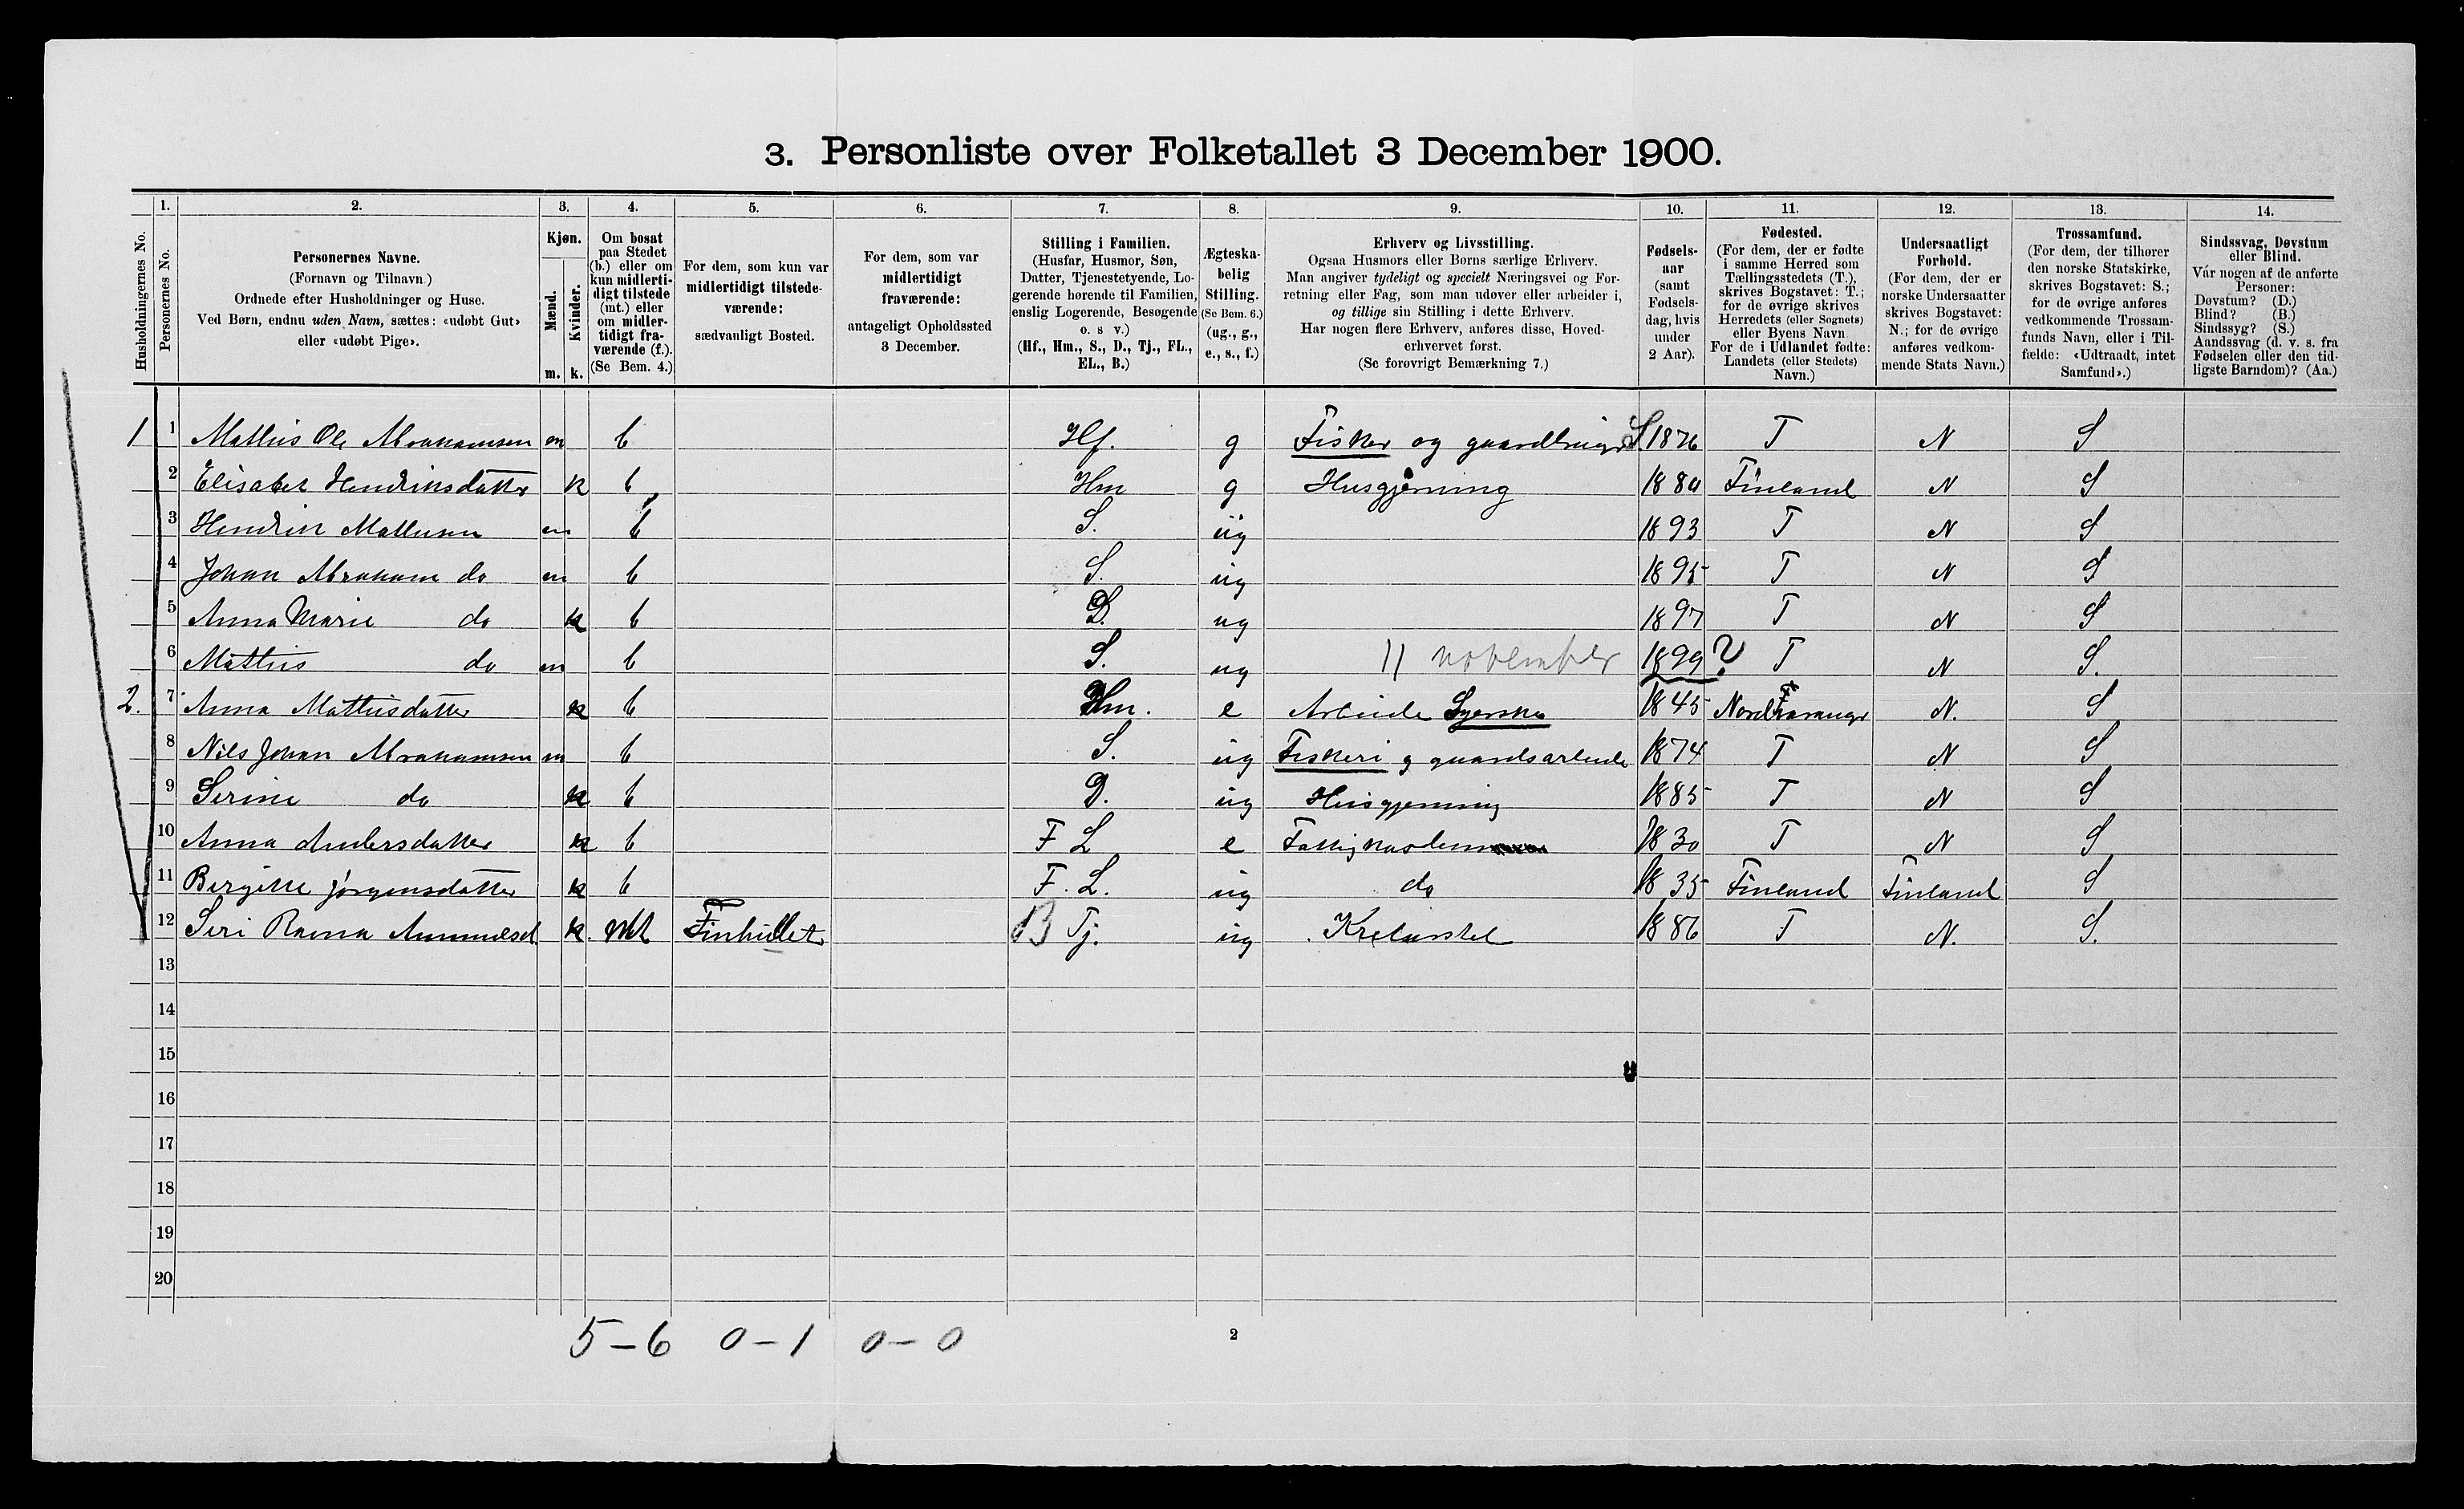 3. Personliste over Folketallet 3 December 1900.
Husholdningernes No.
1. Personernes No.
2. Personernes Navne.
(Fornavn og Tilnavn.)
Ordnede efter Husholdninger og Huse.
Ved Børn, endnu uden Navn, sættes: «udøbt Gut»
eller «udøbt Pige».
3. Kjøn.
Mænd. m.
Kvinder. k.
4. Om bosat
paa Stedet
(b.) eller om
kun midlerti-
digt tilstede
(mt.) eller
om midler-
tidigt fra-
værende (f.).
(Se Bem. 4.)
5. For dem, som kun var
midlertidigt tilstede-
værende:
sædvanligt Bosted.
6. For dem, som var
midlertidigt
fraværende:
antageligt Opholdssted
3 December.
7. Stilling i Familien.
(Husfar, Husmor, Søn,
Datter, Tjenestetyende, Lo-
gerende hørende til Familien,
enslig Logerende, Besøgende
o. s v.)
(Hf., Hm., S., D., Tj., FL.,
EL., B.)
8. Ægteska-
belig
Stilling.
(Se Bem. 6.)
(ug., g.,
e., s., f.)
9. Erhverv og Livsstilling.
Ogsaa Husmors eller Børns særlige Erhverv.
Man angiver tydeligt og specielt Næringsvei og For-
retning eller Fag, som man udøver eller arbeider i,
og tillige sin Stilling i dette Erhverv.
Har nogen flere Erhverv, anføres disse, Hoved-
erhvervet først.
(Se forøvrigt Bemærkning 7.)
10. Fødsels-
aar
(samt
Fødsels-
dag, hvis
under
2 Aar).
11. Fødested.
(For dem, der er fødte
i samme Herred som
Tællingsstedets (T.),
skrives Bogstavet: T.;
for de øvrige skrives
Herredets (eller Sognets)
eller Byens Navn
For de i Udlandet fødte:
Landets (eller Stedets)
Navn.)
12. Undersaatligt
Forhold.
(For dem, der er
norske Undersaatter
skrives Bogstavet:
N.; for de øvrige
anføres vedkom-
mende Stats Navn.)
13. Trossamfund.
(For dem, der tilhører
den norske Statskirke,
skrives Bogstavet: S.;
for de øvrige anføres
vedkommende Trossam-
funds Navn, eller i Til-
fælde: «Udtraadt, intet
Samfund».)
14. Sindssvag, Døvstum
eller Blind.
Var nogen af de anførte
Personer:
Døvstum? (D.)
Blind? (B.)
Sindssyg? (S.)
Aandssvag (d. v. s. fra
Fødselen eller den tid-
ligste Barndom)? (Aa.)
1 1 Mathis Ole Abrahamsen m b Hf. g Fisker og gaardbruger S 1876 T N S
2 Elisabet Hendriksdatter k b Hm g Husgjerning Finland N S
3 Hendrik Mathisen m b S. ug 1893 T N S
4 Johan Abraham do m b S. ug 1895 T N S
5 Anna Marie do k b D. ug 1897 T N S
6 Mathis do m b S. ug 11 november 1899 ? T N S.
2. 7 Anna Mathisdatter k b Hm. e 1845 N. S
8 Nils Johan Abrahamsen m b S. ug Fiskeri g gaardsarbeide 1874 T N S
9 Serine do k b D. ug Husgjerning 1885 T N S
10 Anna Andersdatter k b F L e 1830 T N S
11 Birgitte Jørgensdatter k b F. L. ug do 1835 Finland Finland S
12 Siri Ravna k. mt B Tj. ug 1886 T N. S.
13
14
15
16
17
18
19
20
5-6 0-1 0-0
2